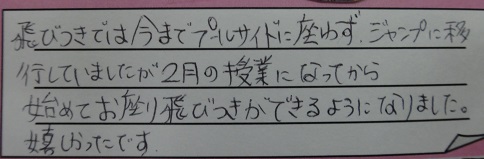 飛びつきでは今までプールサイドに座わず、ジャンプに移
行していましたが2月の授業になってから
始めてお座り飛びつきができるようになりました。
嬉しかったです.